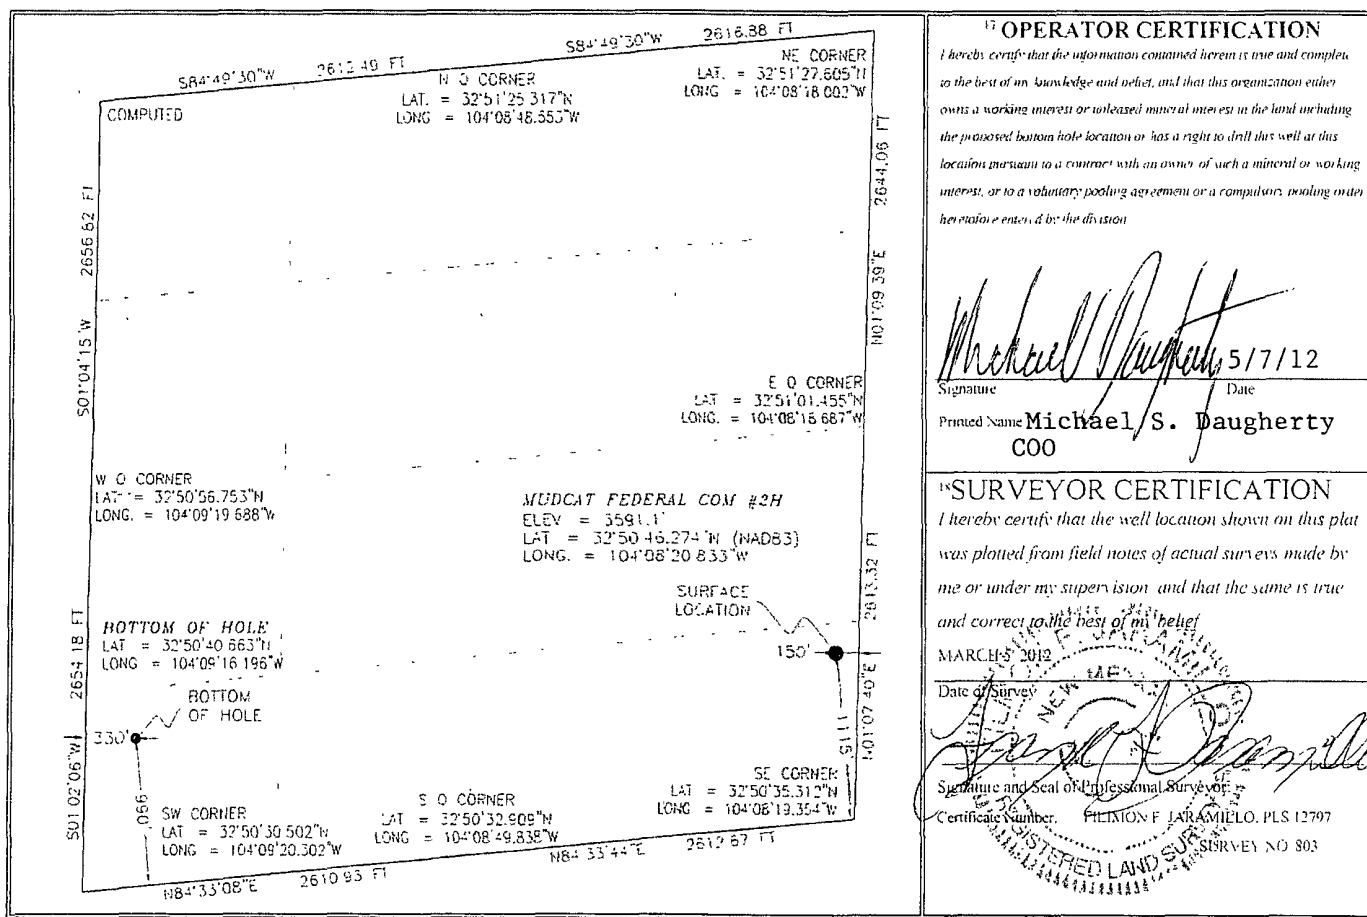 S84°49'30"W 2612.49 FT
S84°49'30"W 2616.88 FT
COMPUTED
N Q CORNER
LAT. = 32°51'25.317"N
LONG = 104°08'48.553"W
NE CORNER
LAT. = 32°51'27.605"N
LONG = 104°08'18.002"W
S01°04'15"W 2656.82 FT
N01°09'39"E 2644.06 FT
E Q CORNER
LAT = 32°51'01.455"N
LONG. = 104°08'18.687"W
W Q CORNER
LAT = 32°50'56.753"N
LONG. = 104°09'19.688"W
MUDCAT FEDERAL COM #2H
ELEV = 3591.1'
LAT = 32°50'46.274"N (NAD83)
LONG. = 104°08'20.833"W
SURFACE
LOCATION
150'
1115'
BOTTOM OF HOLE
LAT = 32°50'40.663"N
LONG = 104°09'16.196"W
BOTTOM
OF HOLE
330'
990'
S01°02'06"W 2654.18 FT
N01°07'40"E 2613.32 FT
SW CORNER
LAT = 32°50'30.502"N
LONG = 104°09'20.302"W
S Q CORNER
LAT = 32°50'32.909"N
LONG = 104°08'49.838"W
SE CORNER
LAT = 32°50'35.312"N
LONG = 104°08'19.354"W
N84°33'08"E 2610.93 FT
N84°33'44"E 2612.67 FT
17 OPERATOR CERTIFICATION
I hereby certify that the information contained herein is true and complete
to the best of my knowledge and belief, and that this organization either
owns a working interest or unleased mineral interest in the land including
the proposed bottom hole location or has a right to drill this well at this
location pursuant to a contract with an owner of such a mineral or working
interest, or to a voluntary pooling agreement or a compulsory pooling order
heretofore entered by the division
Michael S. Daugherty 5/7/12
Signature Date
Printed Name Michael S. Daugherty
COO
18 SURVEYOR CERTIFICATION
I hereby certify that the well location shown on this plat
was plotted from field notes of actual surveys made by
me or under my supervision and that the same is true
and correct to the best of my belief
MARCH 5 2012
Date of Survey
Signature and Seal of Professional Surveyor:
Certificate Number. FILIMON F. JARAMILLO, PLS 12797
SURVEY NO 803
FILIMON F. JARAMILLO
NEW MEXICO
REGISTERED LAND SURVEYOR